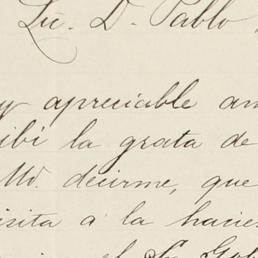 Lic. D. Pablo
y apreciable am
cibí la grata de
Md. decirme, que
isita á la hacie
el Sr. Gob